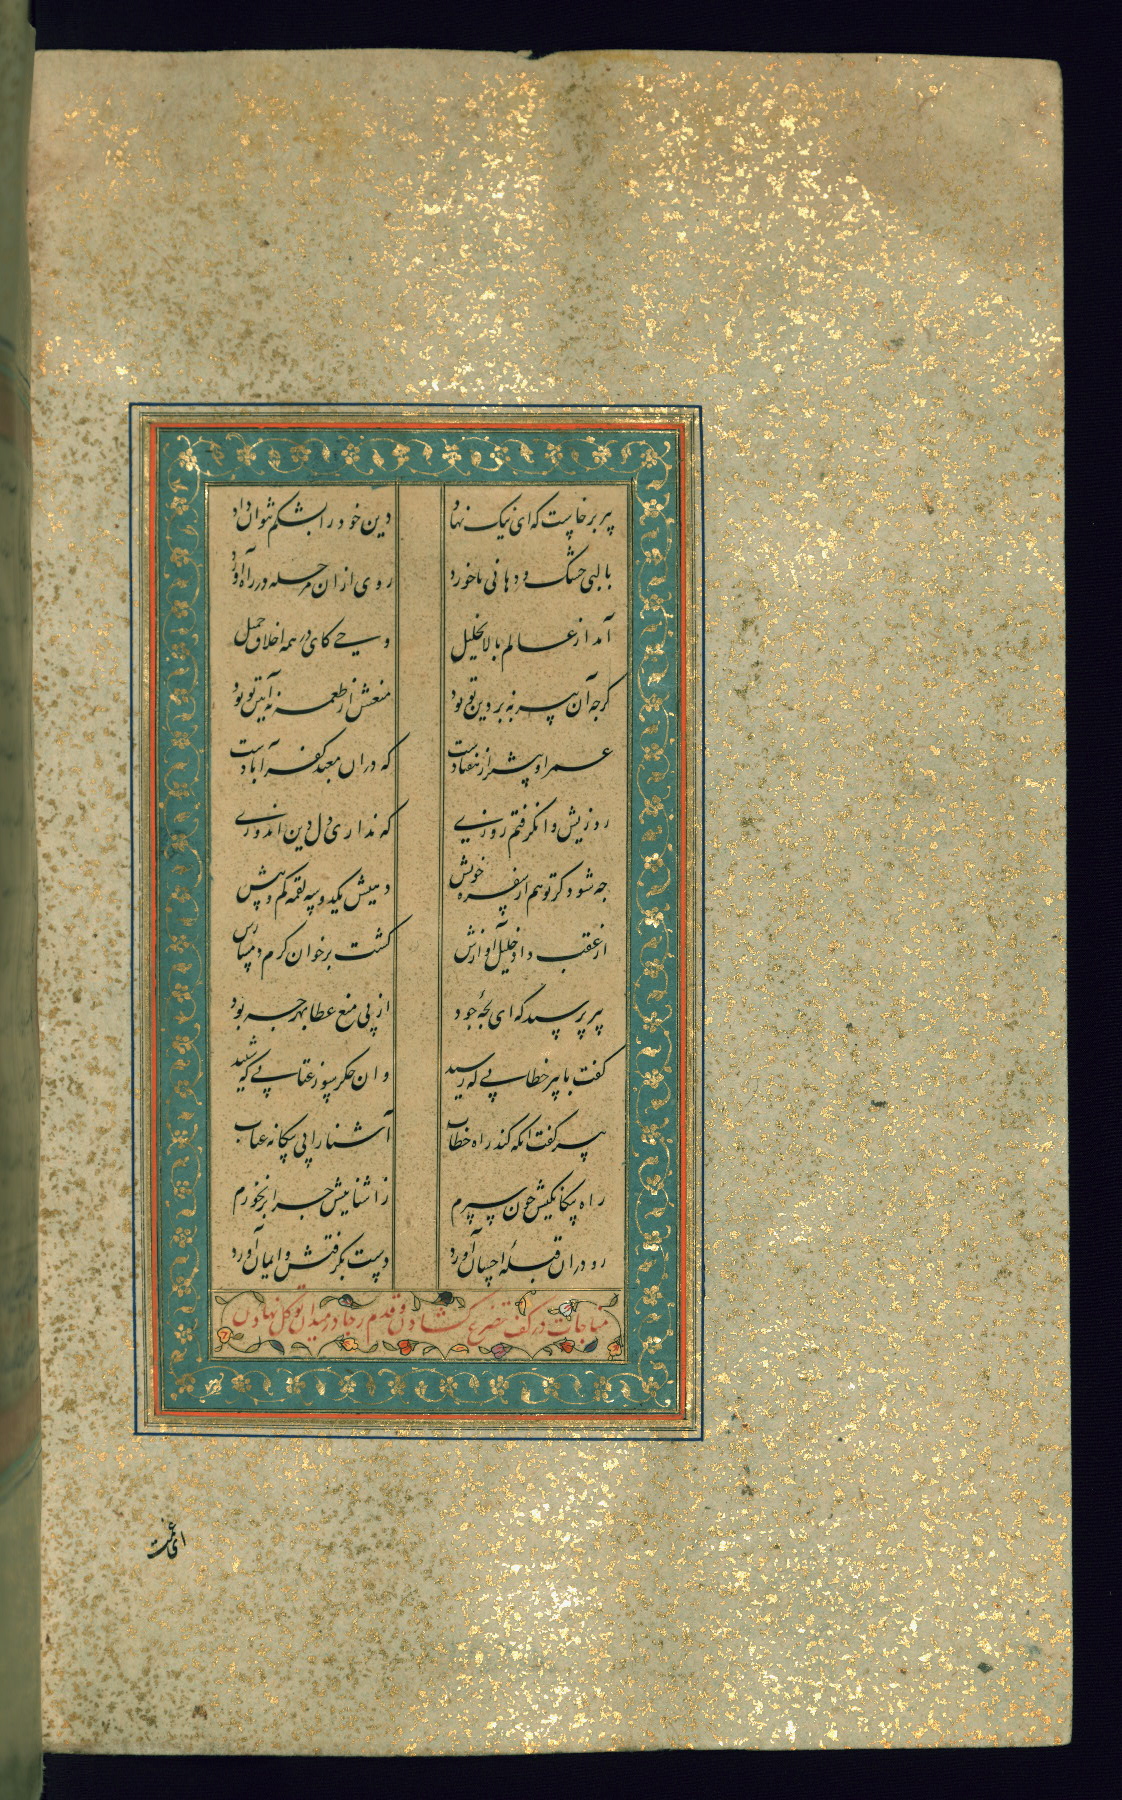 پیر برخاست که ای نیک نهاد دین خود را بشکم نتوان داد
با لبی خشک و دهانی ناخورد روی از ان مرحله در راه آورد
آمد از عالم بالا بخلیل وحی کای در همه اخلاق جمیل
گرچه آن پیر نه بر دین تو بود منعش از طعمه نه آیین تو بود
عمر او بیشتر از هفتادست که در ان معبد کفر آبادست
روزیش وا نگرفتم روزی که نداری دل دین اندوزی
چه شود گر تو هم از سفره خویش دهیش یکدو سه لقمه کم و بیش
از عقب داد خلیل آوازش گشت بر خوان کرم دمسازش
پیر پرسید که ای لجهٔ جود از پی منع عطا بهر چه بود
گفت با پیر خطابی که رسید وان جگر سوز عتابی که شنید
پیر گفت آنکه کند راه خطاب آشنا را پی بیگانه عتاب
راه بیگانگیش چون سپرم ز اشناییش چرا بر نخورم
رو در ان قبلهٔ احسان آورد دست بگرفتش و ایمان آورد
مناجات در کف تضرع گشادن و قدم رجا در میدان توکل نهادن
ای غمت